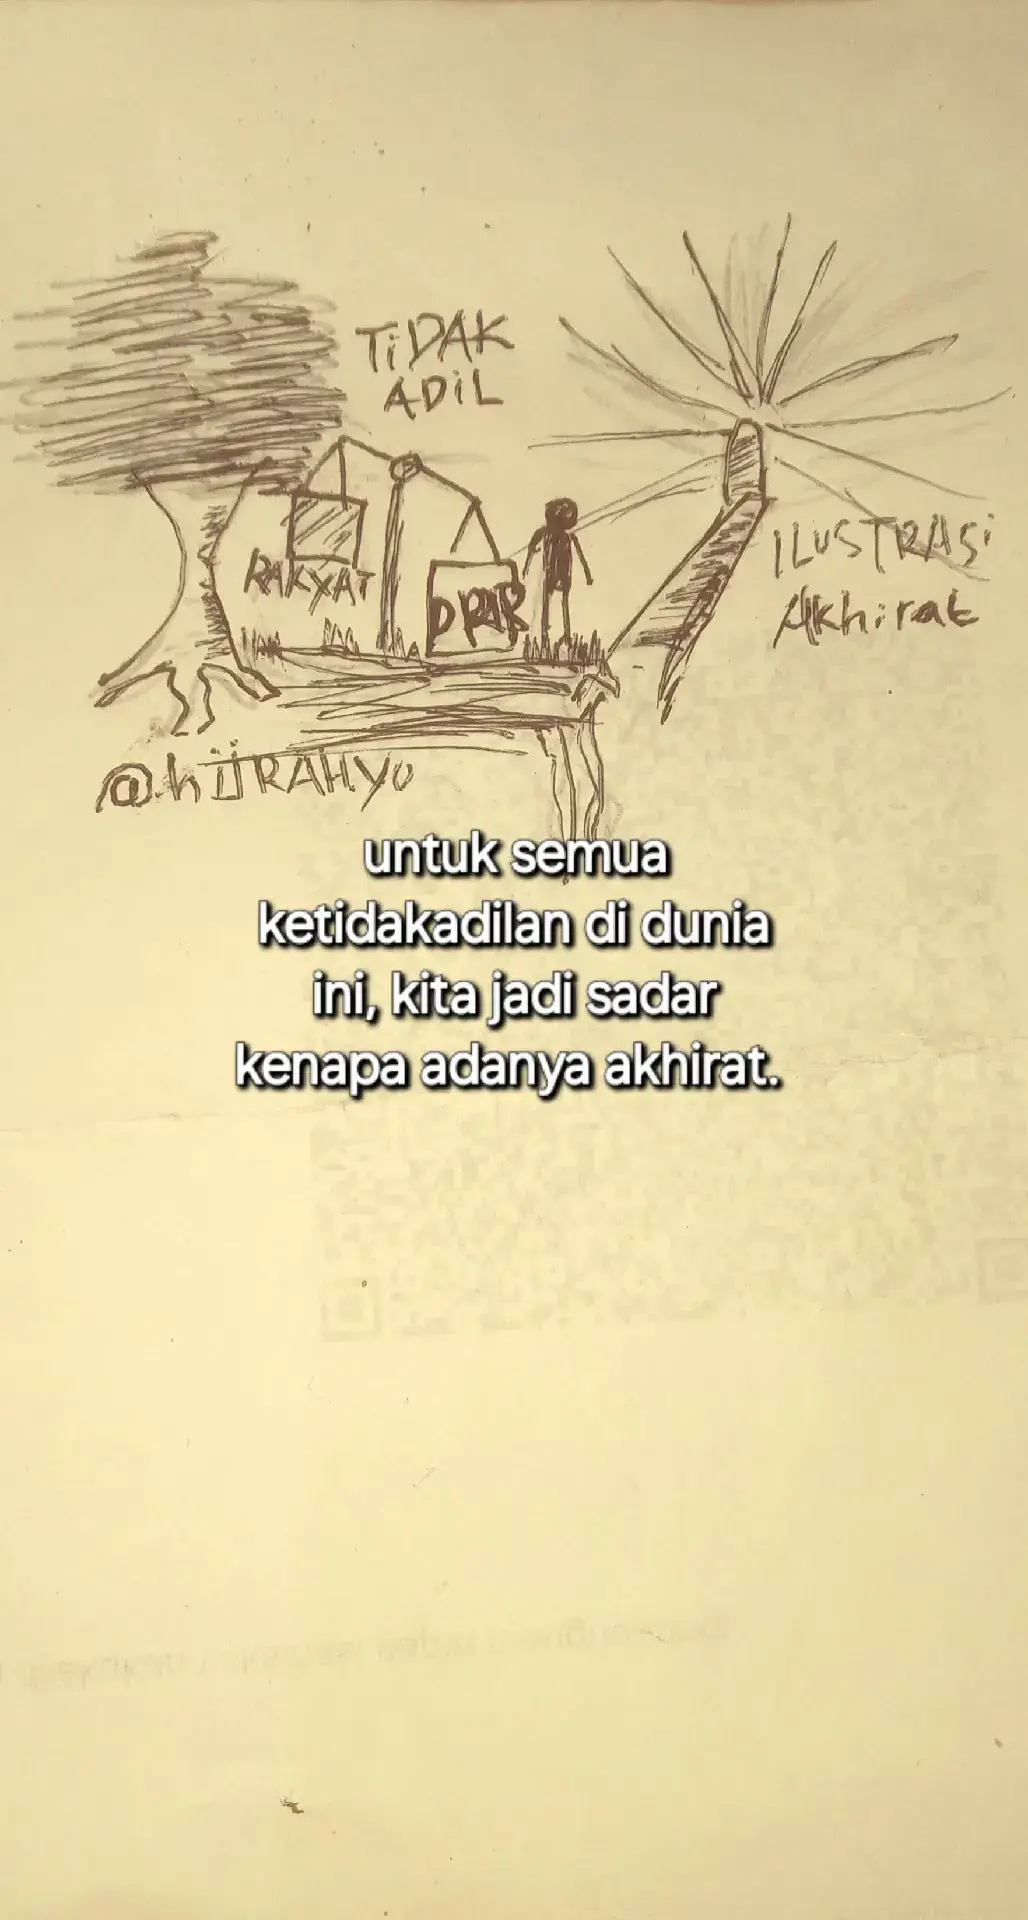 TiDAK
ADiL
RAKYAT
DPR
ILUSTRASi
Akhirat
@hijRAHyu
untuk semua
ketidakadilan di dunia
ini, kita jadi sadar
kenapa adanya akhirat.